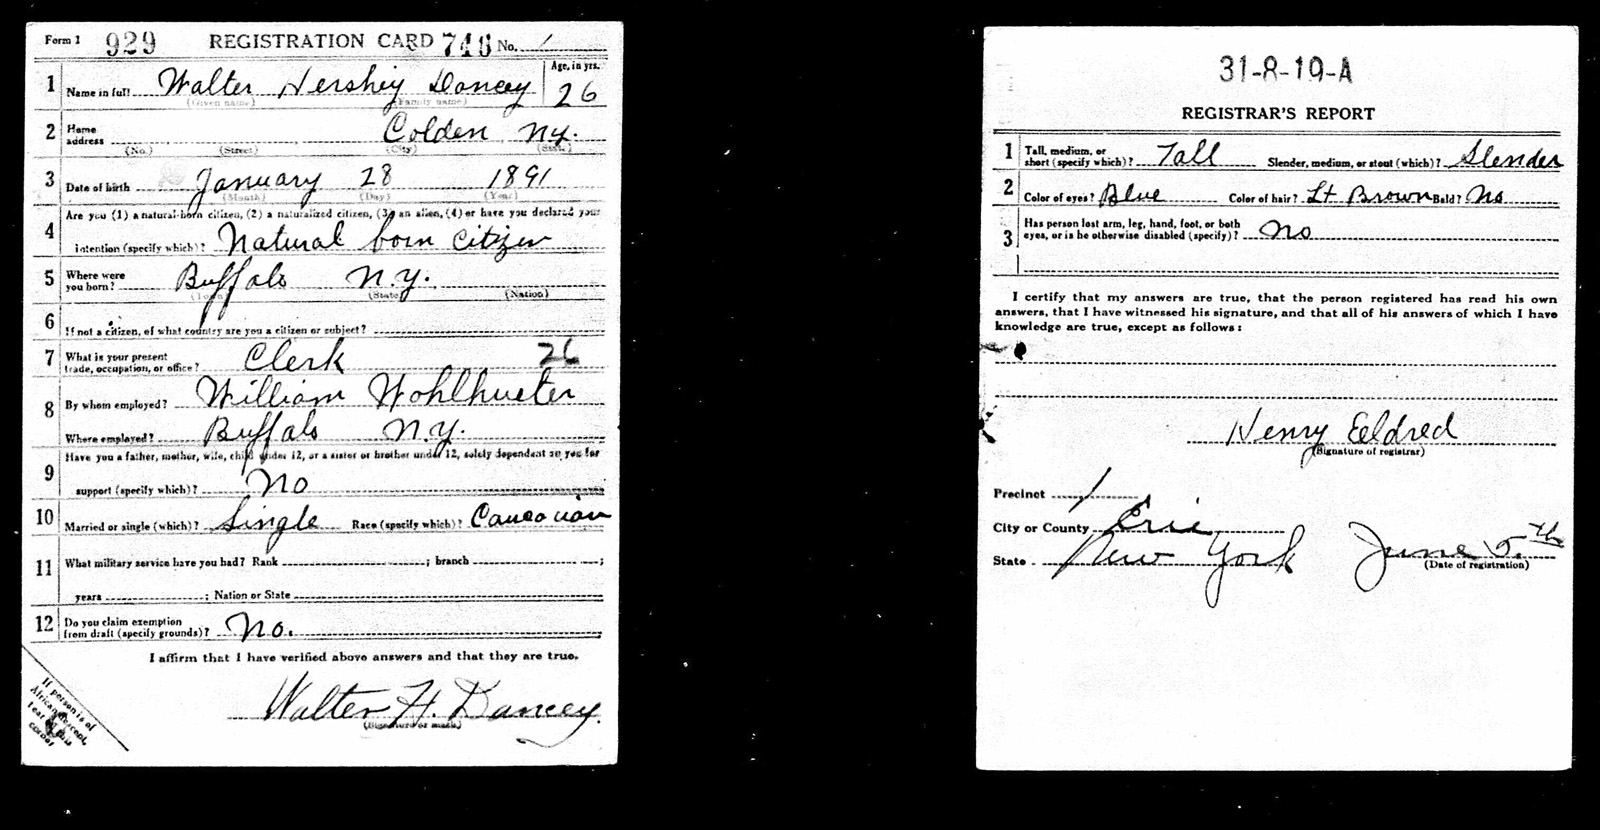 Form 1 929 REGISTRATION CARD 746 No. 1
1 Name in full Walter Hershey Dancey Age, in yrs. 26
(Given name) (Family name)
2 Home address Colden N.Y.
(No.) (Street) (City) (State)
3 Date of birth January 28 1891
(Month) (Day) (Year)
4 Are you (1) a natural-born citizen, (2) a naturalized citizen, (3) an alien, (4) or have you declared your
intention (specify which)? Natural born citizen
5 Where were you born? Buffalo N.Y.
(Town) (State) (Nation)
6 If not a citizen, of what country are you a citizen or subject?
7 What is your present trade, occupation, or office? Clerk 26
8 By whom employed? William Wohlhueter
Where employed? Buffalo N.Y.
9 Have you a father, mother, wife, child under 12, or a sister or brother under 12, solely dependent on you for
support (specify which)? No
10 Married or single (which)? Single Race (specify which)? Caucasian
11 What military service have you had? Rank ; branch ;
years ; Nation or State
12 Do you claim exemption from draft (specify grounds)? No.
I affirm that I have verified above answers and that they are true.
Walter H. Dancey
(Signature or mark)
If person is of
African descent,
tear off this
corner
31-8-19-A
REGISTRAR'S REPORT
1 Tall, medium, or short (specify which)? Tall Slender, medium, or stout (which)? Slender
2 Color of eyes? Blue Color of hair? Lt Brown Bald? No
3 Has person lost arm, leg, hand, foot, or both
eyes, or is he otherwise disabled (specify)? No
I certify that my answers are true, that the person registered has read his own
answers, that I have witnessed his signature, and that all of his answers of which I have
knowledge are true, except as follows:
Henry Eeldred
(Signature of registrar)
Precinct 1
City or County Erie
State New York June 5th
(Date of registration)